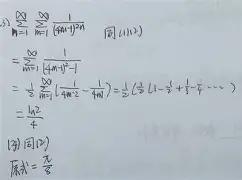 3) \sum_{m=1}^{\infty} \sum_{n=1}^{\infty} \frac{1}{(4m-1)^{2n}} 同(1)(2)
= \sum_{m=1}^{\infty} \frac{1}{(4m-1)^2-1}
= \frac{1}{2} \sum_{m=1}^{\infty} (\frac{1}{4m-2} - \frac{1}{4m}) = \frac{1}{2} (\frac{1}{2} (1-\frac{1}{2}+\frac{1}{3}-\frac{1}{4} \cdots)
= \frac{\ln 2}{4}
同(2)
原式 = \frac{\pi}{8}